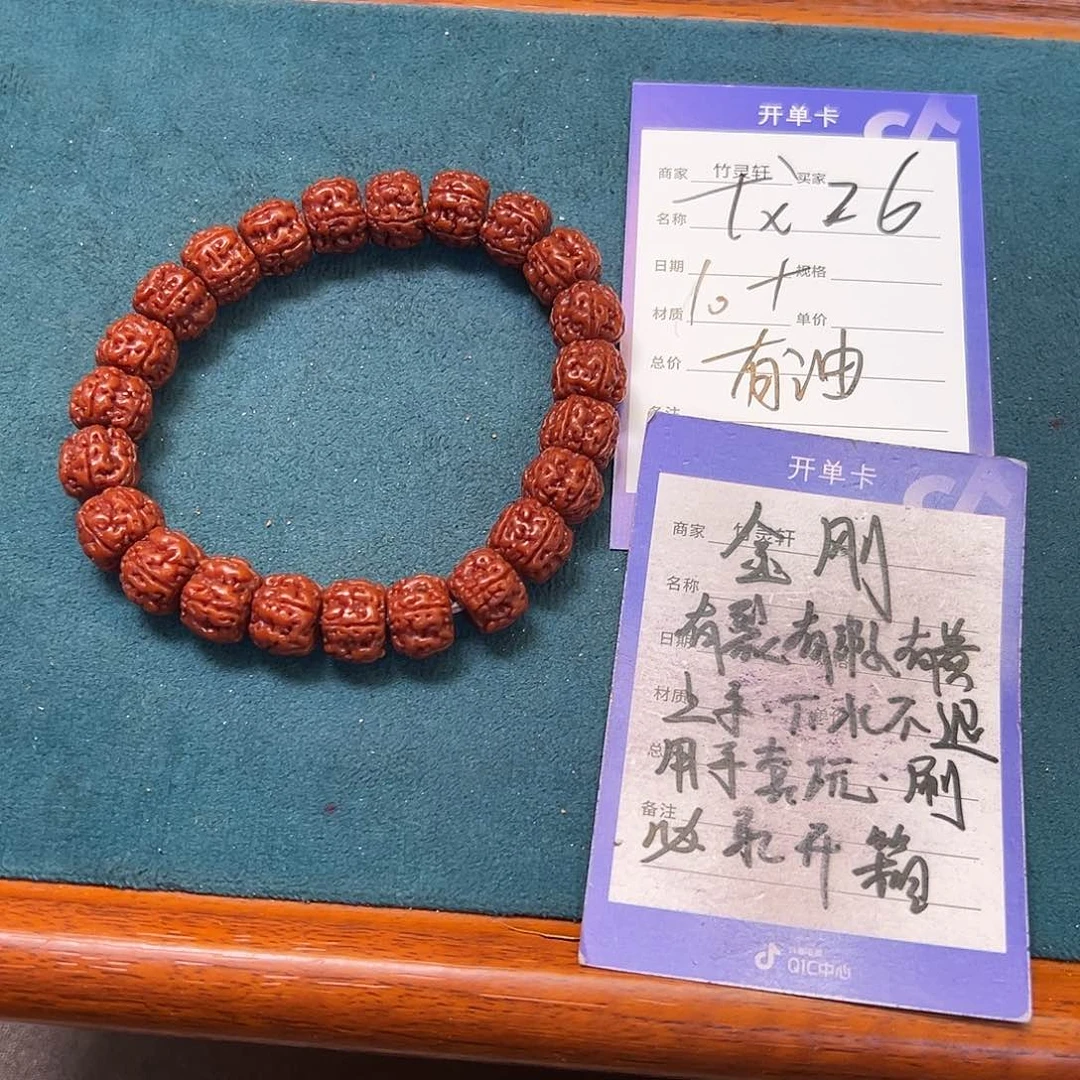 开单卡
商家 竹灵轩 买家
tx 26
名称
日期 规格
10+
材质 单价
总价 有油
备注
开单卡
商家 竹灵轩
金刚
名称
有裂有瑕有黄
日期
材质
上手·下水不退
用手套玩·刷
备注
必录开箱
抖音电商
QIC中心